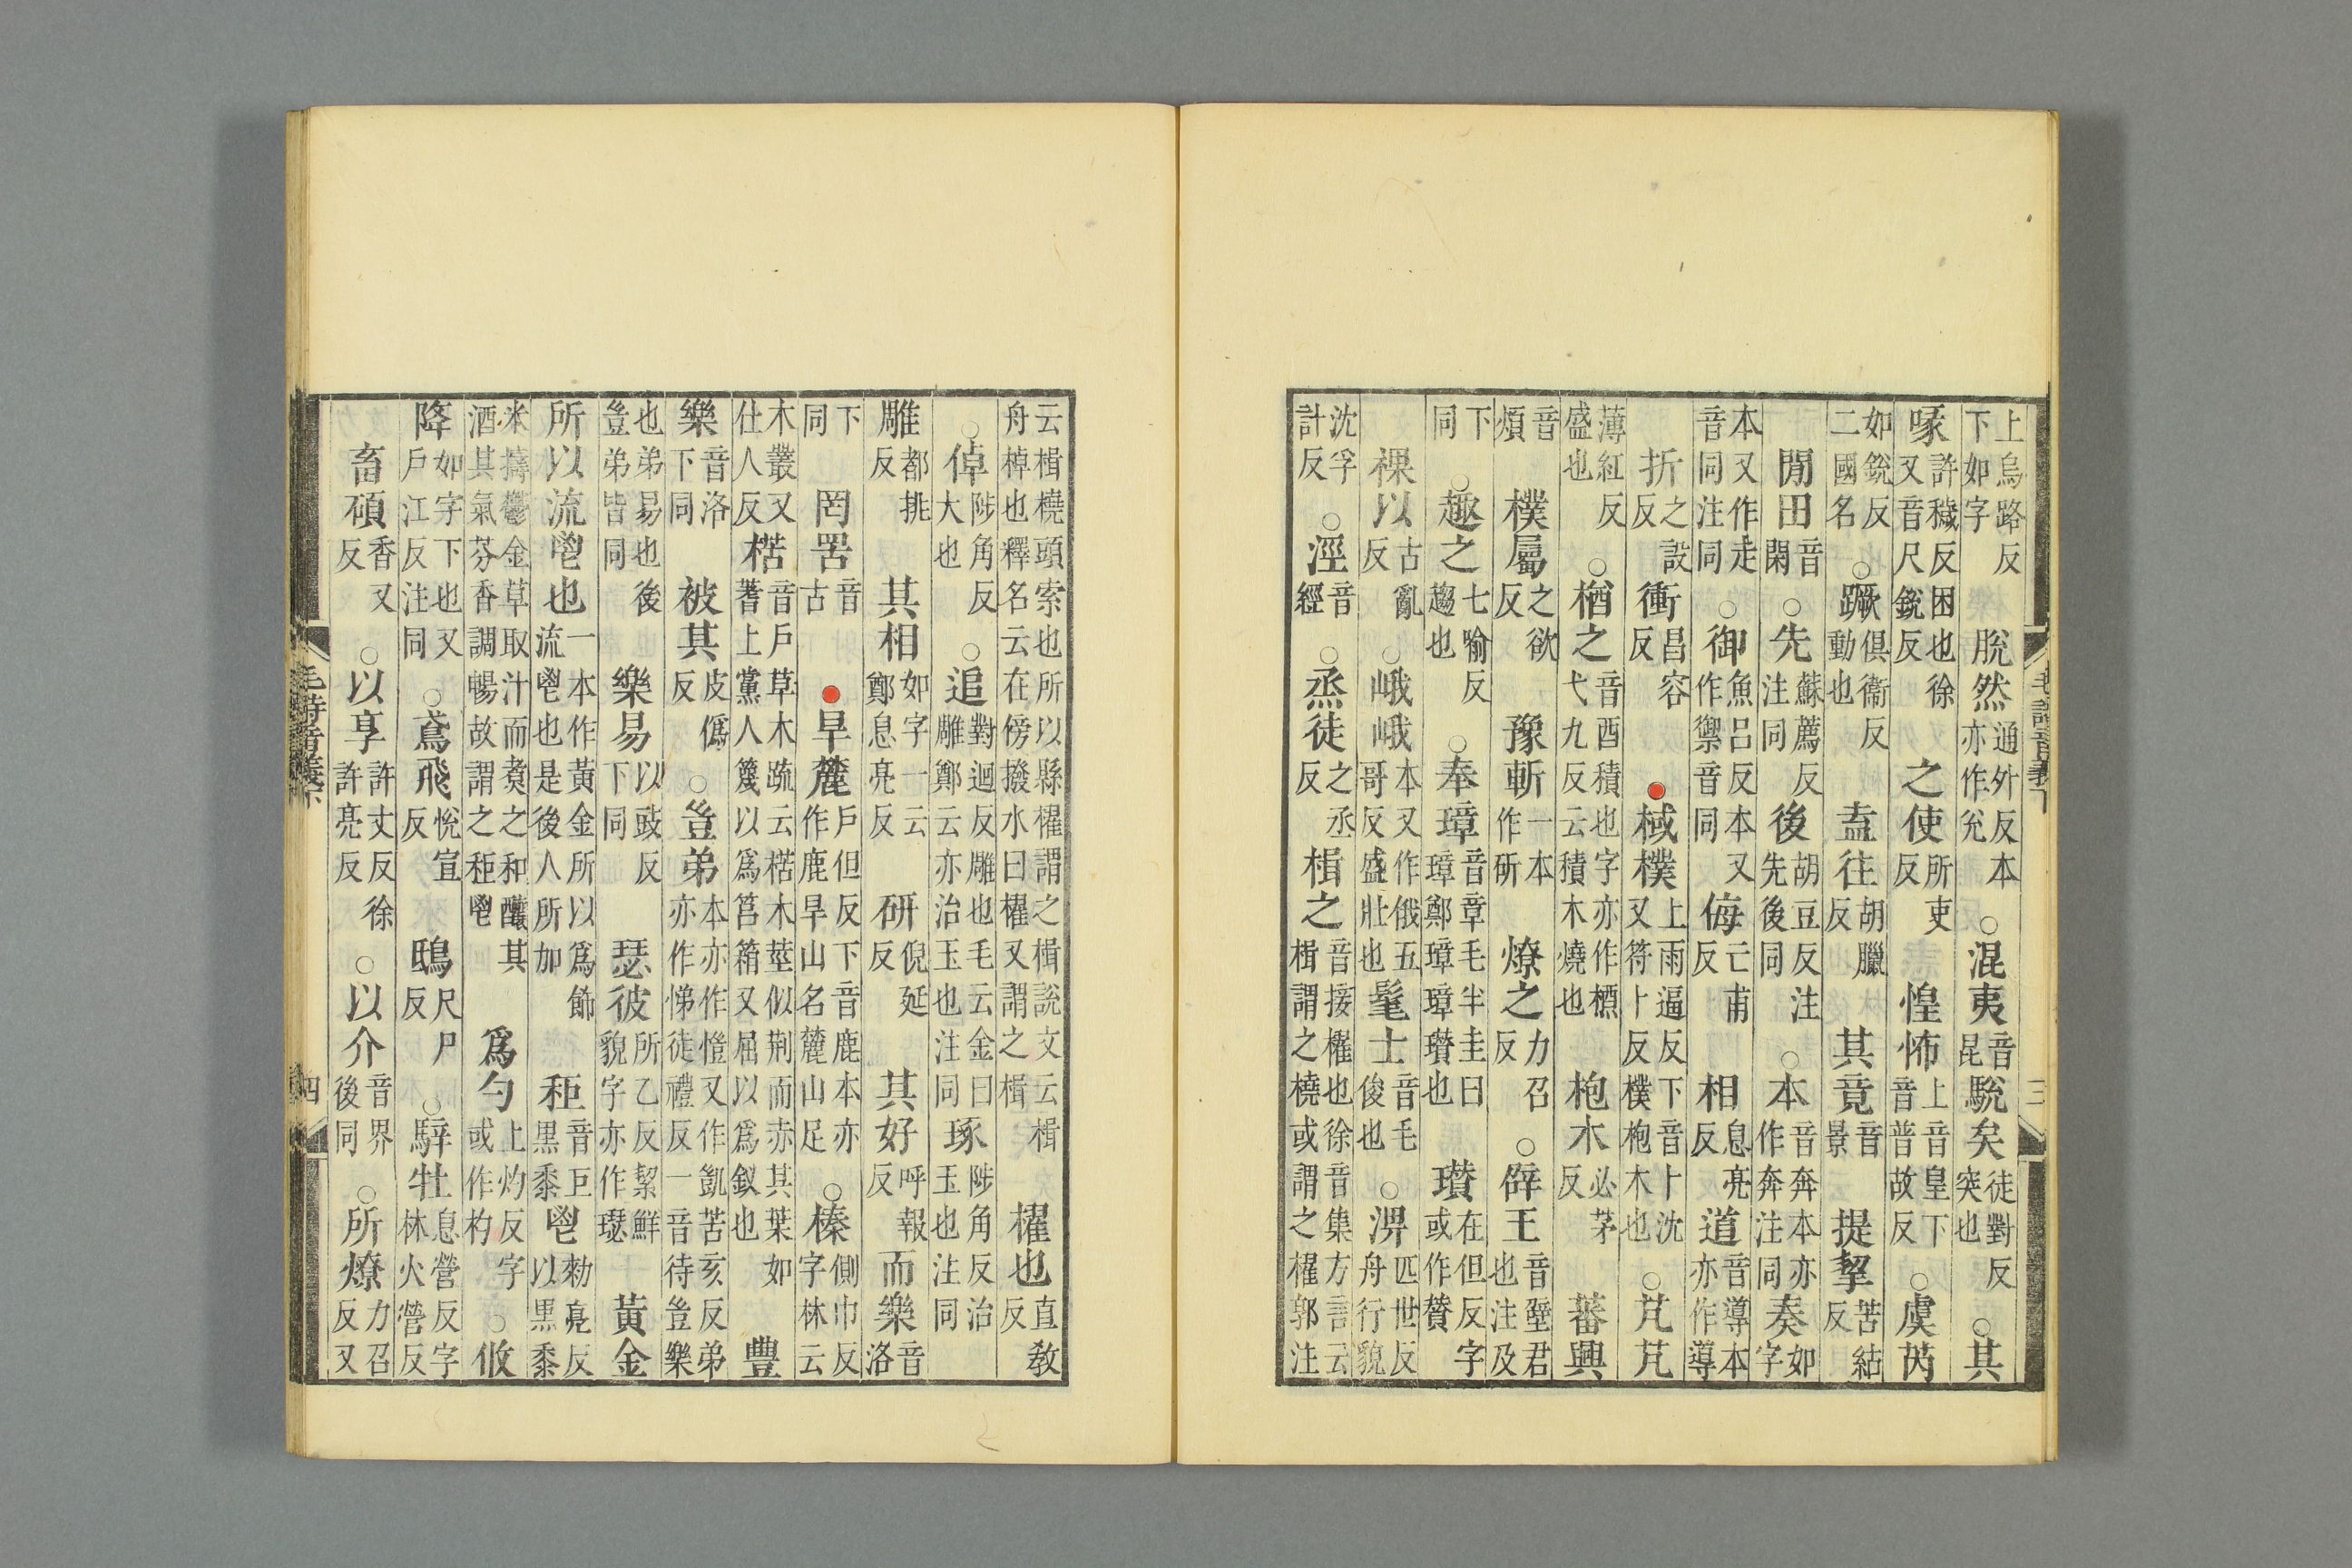 上烏路反下如字脫然通外反本亦作兊○混夷音昆駾矣徒對反突也○其
喙許穢反困也徐又音尺銳反之使所吏反惶怖上音皇下音普故反○虞芮
如銳反二國名○蹶俱衞反動也盍往胡臘反其竟音景提挈苦結反
閒田音閑○先蘇薦反注同後胡豆反注先後同○本音奔本亦作奔注同奏如字
本又作走音同注同○御魚呂反本又作禦音同侮亡甫反相息亮反道音導本亦作導
折之設反衝昌容反●棫樸上雨逼反下音卜沈又符卜反樸枹木也○芃芃
薄紅反盛也○槱之音酉積也字亦作槱弋九反云積木燒也枹木必茅反蕃興
音煩樸屬之欲反豫斬一本作斫燎之力召反○辟王音璧君也注及
下同○趣之七喻反趨也○奉璋音章毛半圭曰璋鄭璋璋瓚也瓚在但反字或作贊
祼以古亂反○峨峨本又作俄五哥反盛壯也髦士音毛俊也○淠匹世反舟行貌
沈孚計反○涇音經○烝徒之丞反楫之音接櫂也徐音集方言云楫謂之橈或謂之櫂郭注
毛詩音義下 三
云楫橈頭索也所以縣櫂謂之楫說文云楫舟棹也釋名云在傍撥水曰櫂又謂之楫櫂也直教反
○倬陟角反大也○追對迴反雕也毛云金曰雕鄭云亦治玉也注同琢陟角反治玉也注同
雕都挑反其相如字一云鄭息亮反研倪延反其好呼報反而樂音洛
下同罔罟音古●旱麓戶但反下音鹿本亦作鹿旱山名麓山足○榛側巾反字林云
木叢又仕人反楛音戶草木疏云楛木莖似荆而赤其葉如蓍上黨人篾以爲筥箱又屈以爲釵也豐
樂音洛下同被其皮僞反○豈弟本亦作愷又作凱苦亥反弟亦作悌徒禮反一音待豈樂
也弟易也後豈弟皆同樂易以豉反下同瑟彼所乙反絜鮮貌字亦作璱黃金
所以流鬯也一本作黃金所以爲飾流鬯也是後人所加秬音巨黑黍鬯勑亮反以黑黍
米擣鬱金草取汁而煑之和釀其酒其氣芬香調暢故謂之秬鬯爲勺上灼反字或作杓○攸
降如字下也又戶江反注同○鳶飛悅宣反鴟尺尸反○騂牡息營反字林火營反
畜碩香又反○以享許丈反徐許亮反○以介音界後同○所燎力召反又
毛詩音義下 四